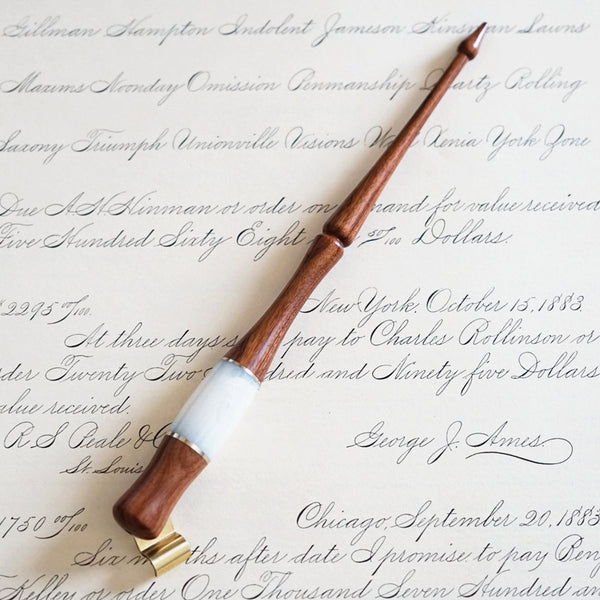 Gillman Hampton Indolent Jameson Kinsman Lawns
Maxims Noonday Omission Penmanship Quartz Rolling
Saxony Triumph Unionville Visions Xenia York Zone
Due A.N. Hinman or order on mand for value received
Five Hundred Sixty Eight 50/100 Dollars.
$2295 00/100. New York, October 15, 1883.
At three days s pay to Charles Rollinson or
der Twenty Two dred and Ninety five Dollars
alue received.
R.S. Peale & Co George J. Ames
St. Louis
1750 00/100 Chicago, September 20, 1883
Six m ths after date I promise to pay Ben
Kelley or order One Thousand Seven Hundred an